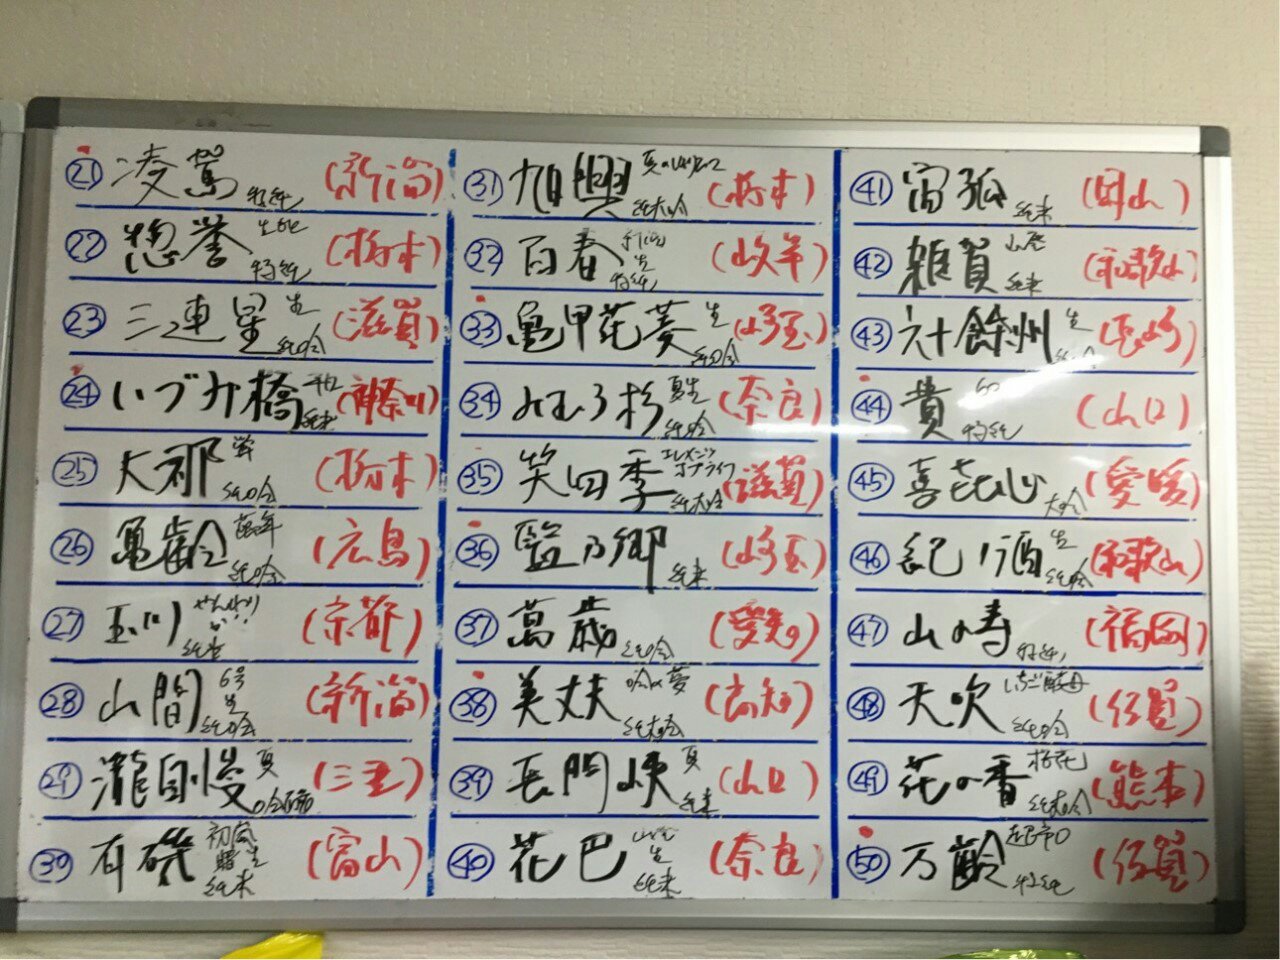 ㉑ 凌駕 特純 (新潟)
㉒ 惣誉 生酛 特純 (栃木)
㉓ 三連星 生 純吟 (滋賀)
㉔ いづみ橋 純米 (神奈川)
㉕ 大那 蛍 純吟 (栃木)
㉖ 亀齢 萬年 純吟 (広島)
㉗ 玉川 純米 (京都)
㉘ 山間 6号 生 純吟 (新潟)
㉙ 瀧自慢 夏 吟醸 (三重)
㉚ 有磯 初嵐 曙 生 純米 (富山)
㉛ 旭興 夏 純大吟 (栃木)
㉜ 百春 生 特純 (岐阜)
㉝ 亀甲花菱 生 純吟 (埼玉)
㉞ みむろ杉 夏生 純吟 (奈良)
㉟ 笑四季 純大吟 (滋賀)
㊱ 藍乃郷 純米 (埼玉)
㊲ 萬歳 純吟 (愛知)
㊳ 美丈夫 吟の夢 純大吟 (高知)
㊴ 長門峡 夏 純米 (山口)
㊵ 花巴 生 純米 (奈良)
㊶ 宙狐 純米 (岡山)
㊷ 雑賀 山廃 純米 (和歌山)
㊸ 六十餘州 生 純吟 (長崎)
㊹ 貴 特純 (山口)
㊺ 喜花心 大吟 (愛媛)
㊻ 紀ノ酒 生 純吟 (和歌山)
㊼ 山の寿 特純 (福岡)
㊽ 天吹 いちご酵母 純吟 (佐賀)
㊾ 花の香 桜花 純大吟 (熊本)
㊿ 万齢 超辛口 特純 (佐賀)